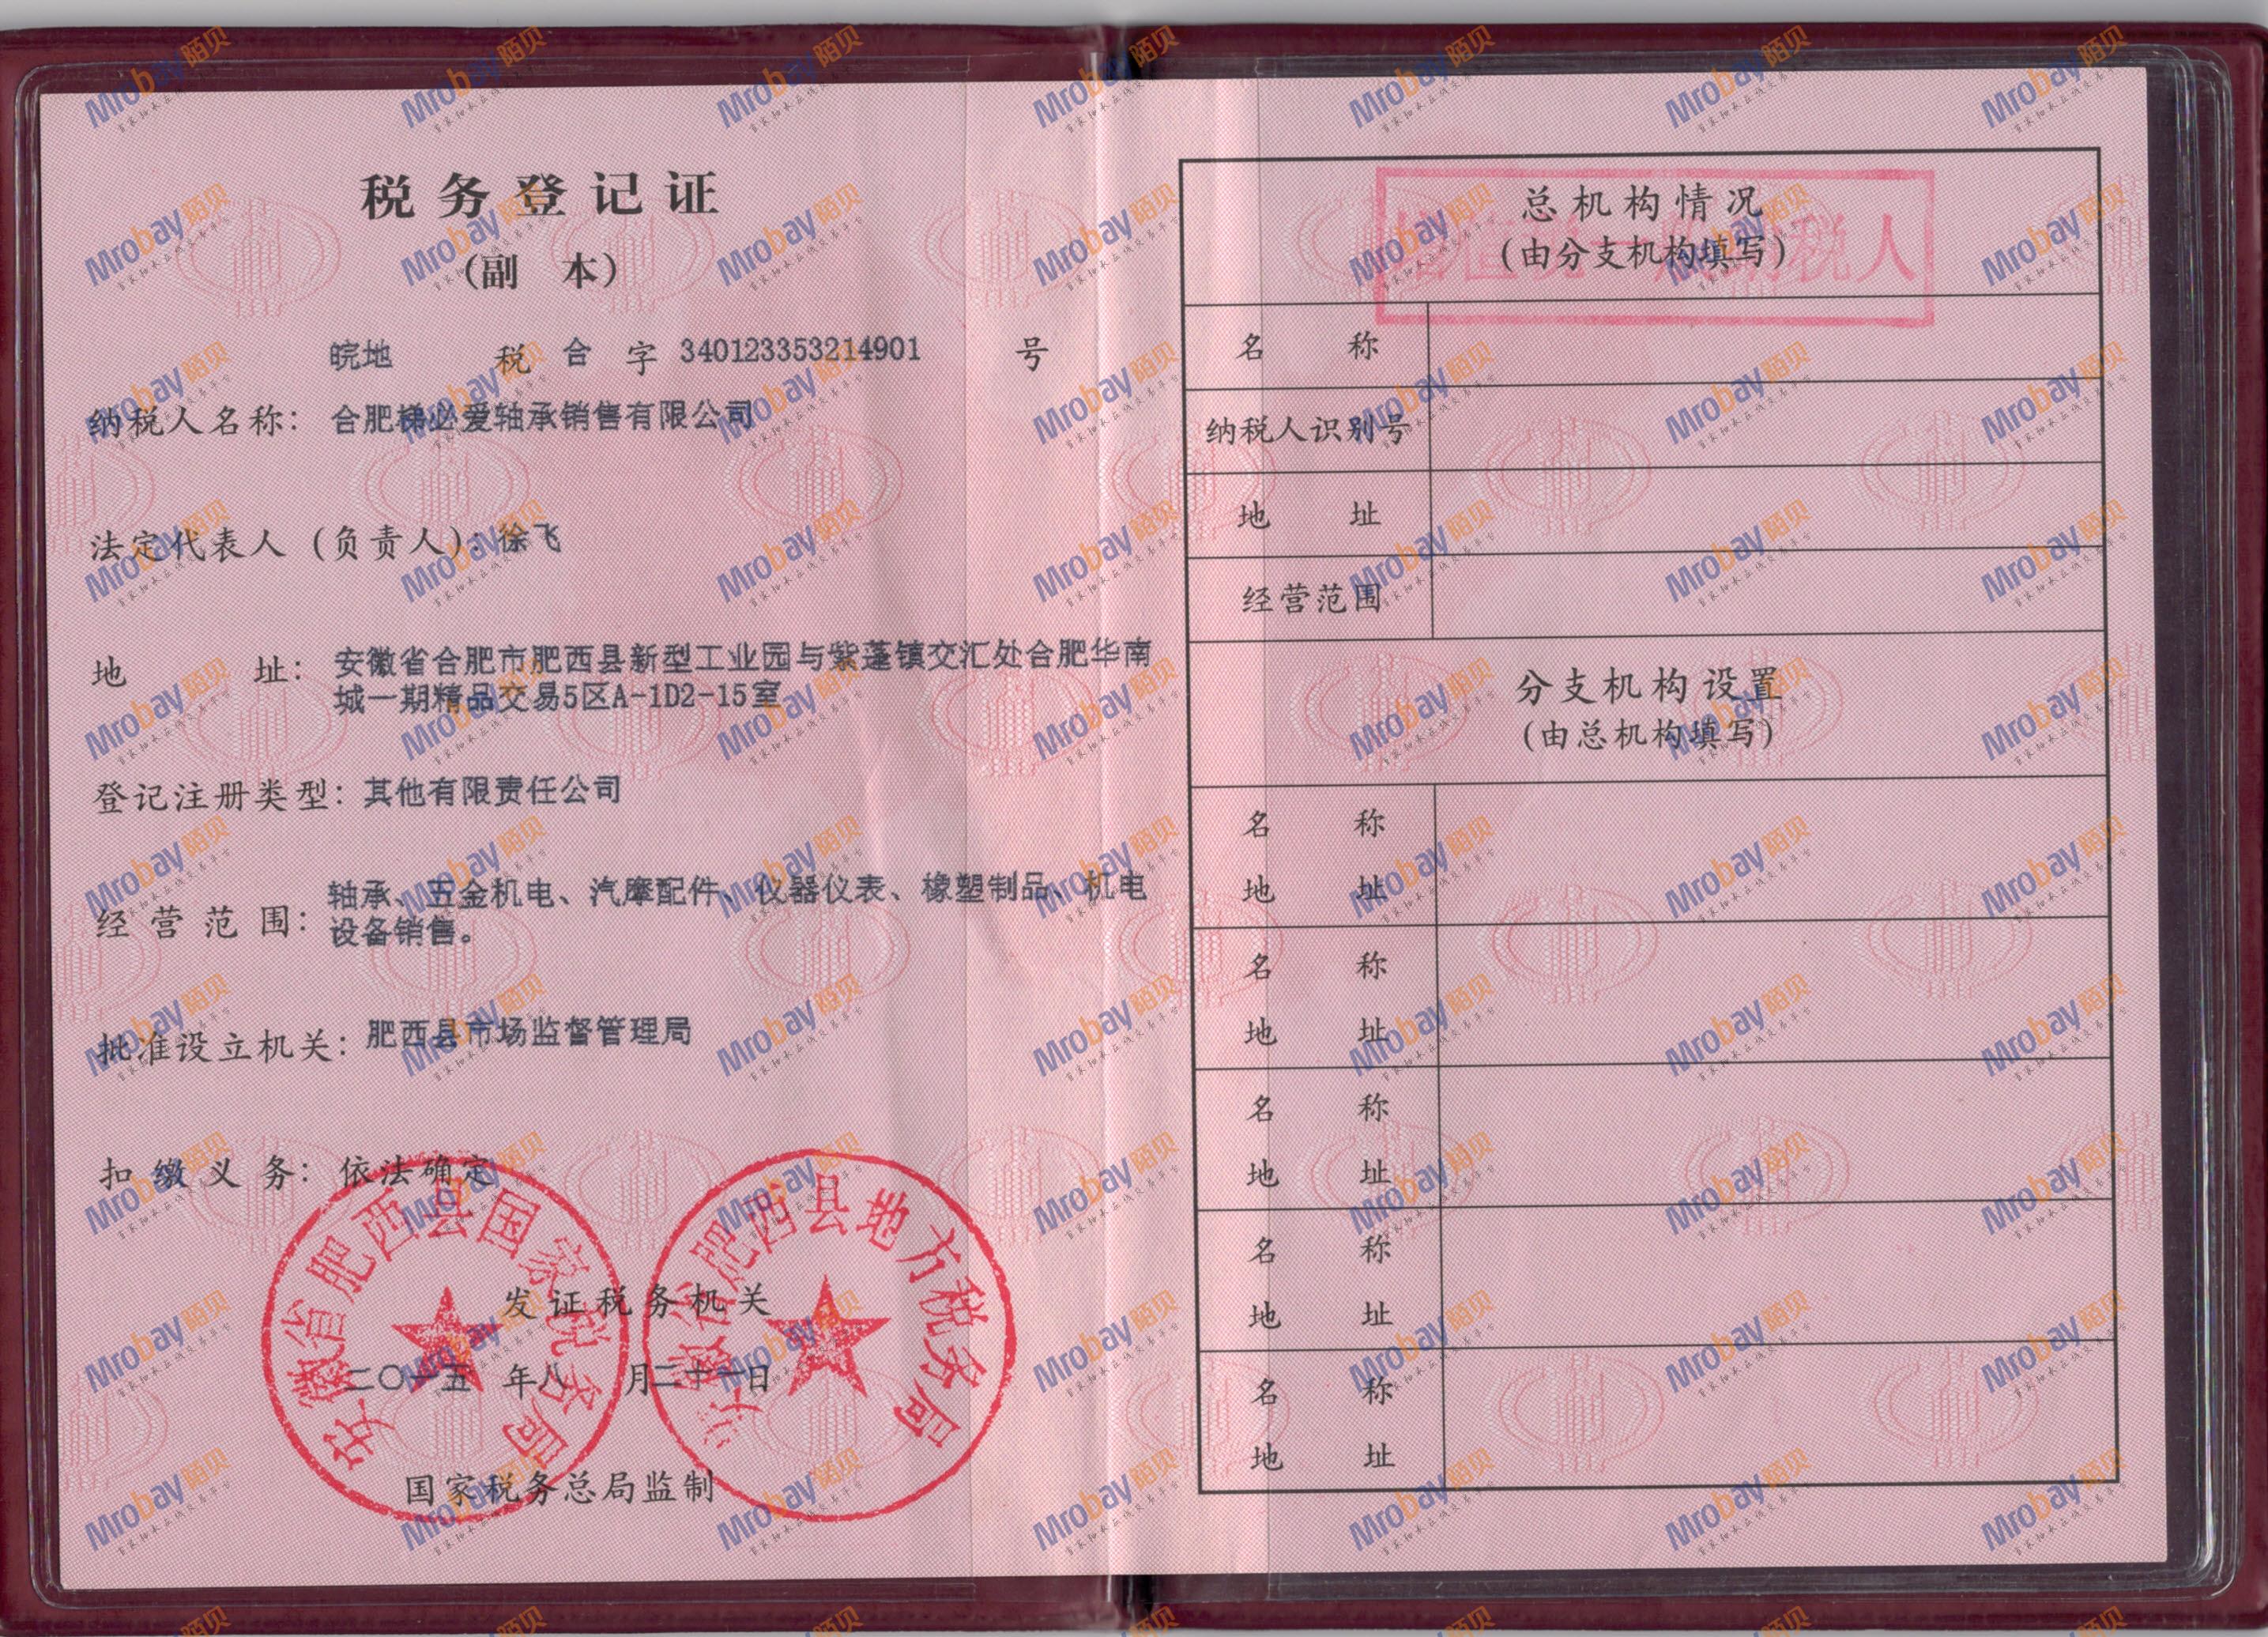 税务登记证
(副 本)
皖地 税 合 字 340123353214901 号
纳税人名称: 合肥梯必爱轴承销售有限公司
法定代表人 (负责人): 徐飞
地 址: 安徽省合肥市肥西县新型工业园与紫蓬镇交汇处合肥华南
城一期精品交易5区A-1D2-15室
登记注册类型: 其他有限责任公司
经营范围: 轴承、五金机电、汽摩配件、仪器仪表、橡塑制品、机电
设备销售。
批准设立机关: 肥西县市场监督管理局
扣缴义务: 依法确定
安徽省肥西县国家税务局
安徽省肥西县地方税务局
发证税务机关
二〇一五 年八 月二十一日
国家税务总局监制
总机构情况
(由分支机构填写)
增值税一般纳税人
名 称
纳税人识别号
地 址
经营范围
分支机构设置
(由总机构填写)
名 称
地 址
名 称
地 址
名 称
地 址
名 称
地 址
名 称
地 址
Mrobay陌贝